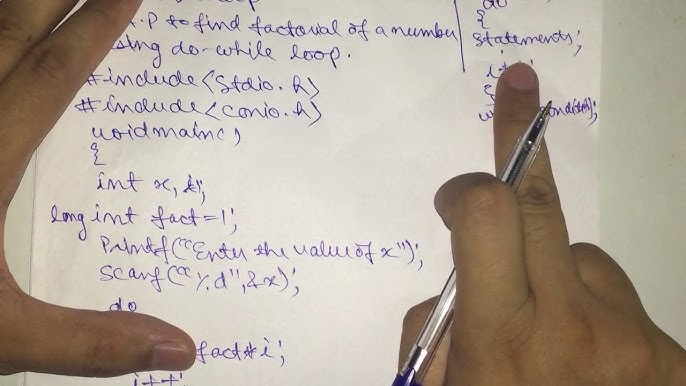 loop
.P to find factorial of a number
using do-while loop.
#include<stdio.h>
#include<conio.h>
void main()
{
int x, i;
long int fact=1;
Printf("Enter the value of x");
Scanf("%d",&x);
do
fact*i;
i++;
do
{
statements;